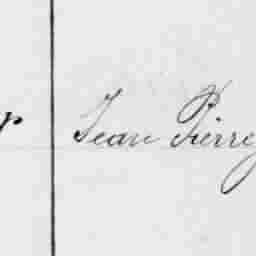 Jean Pierre